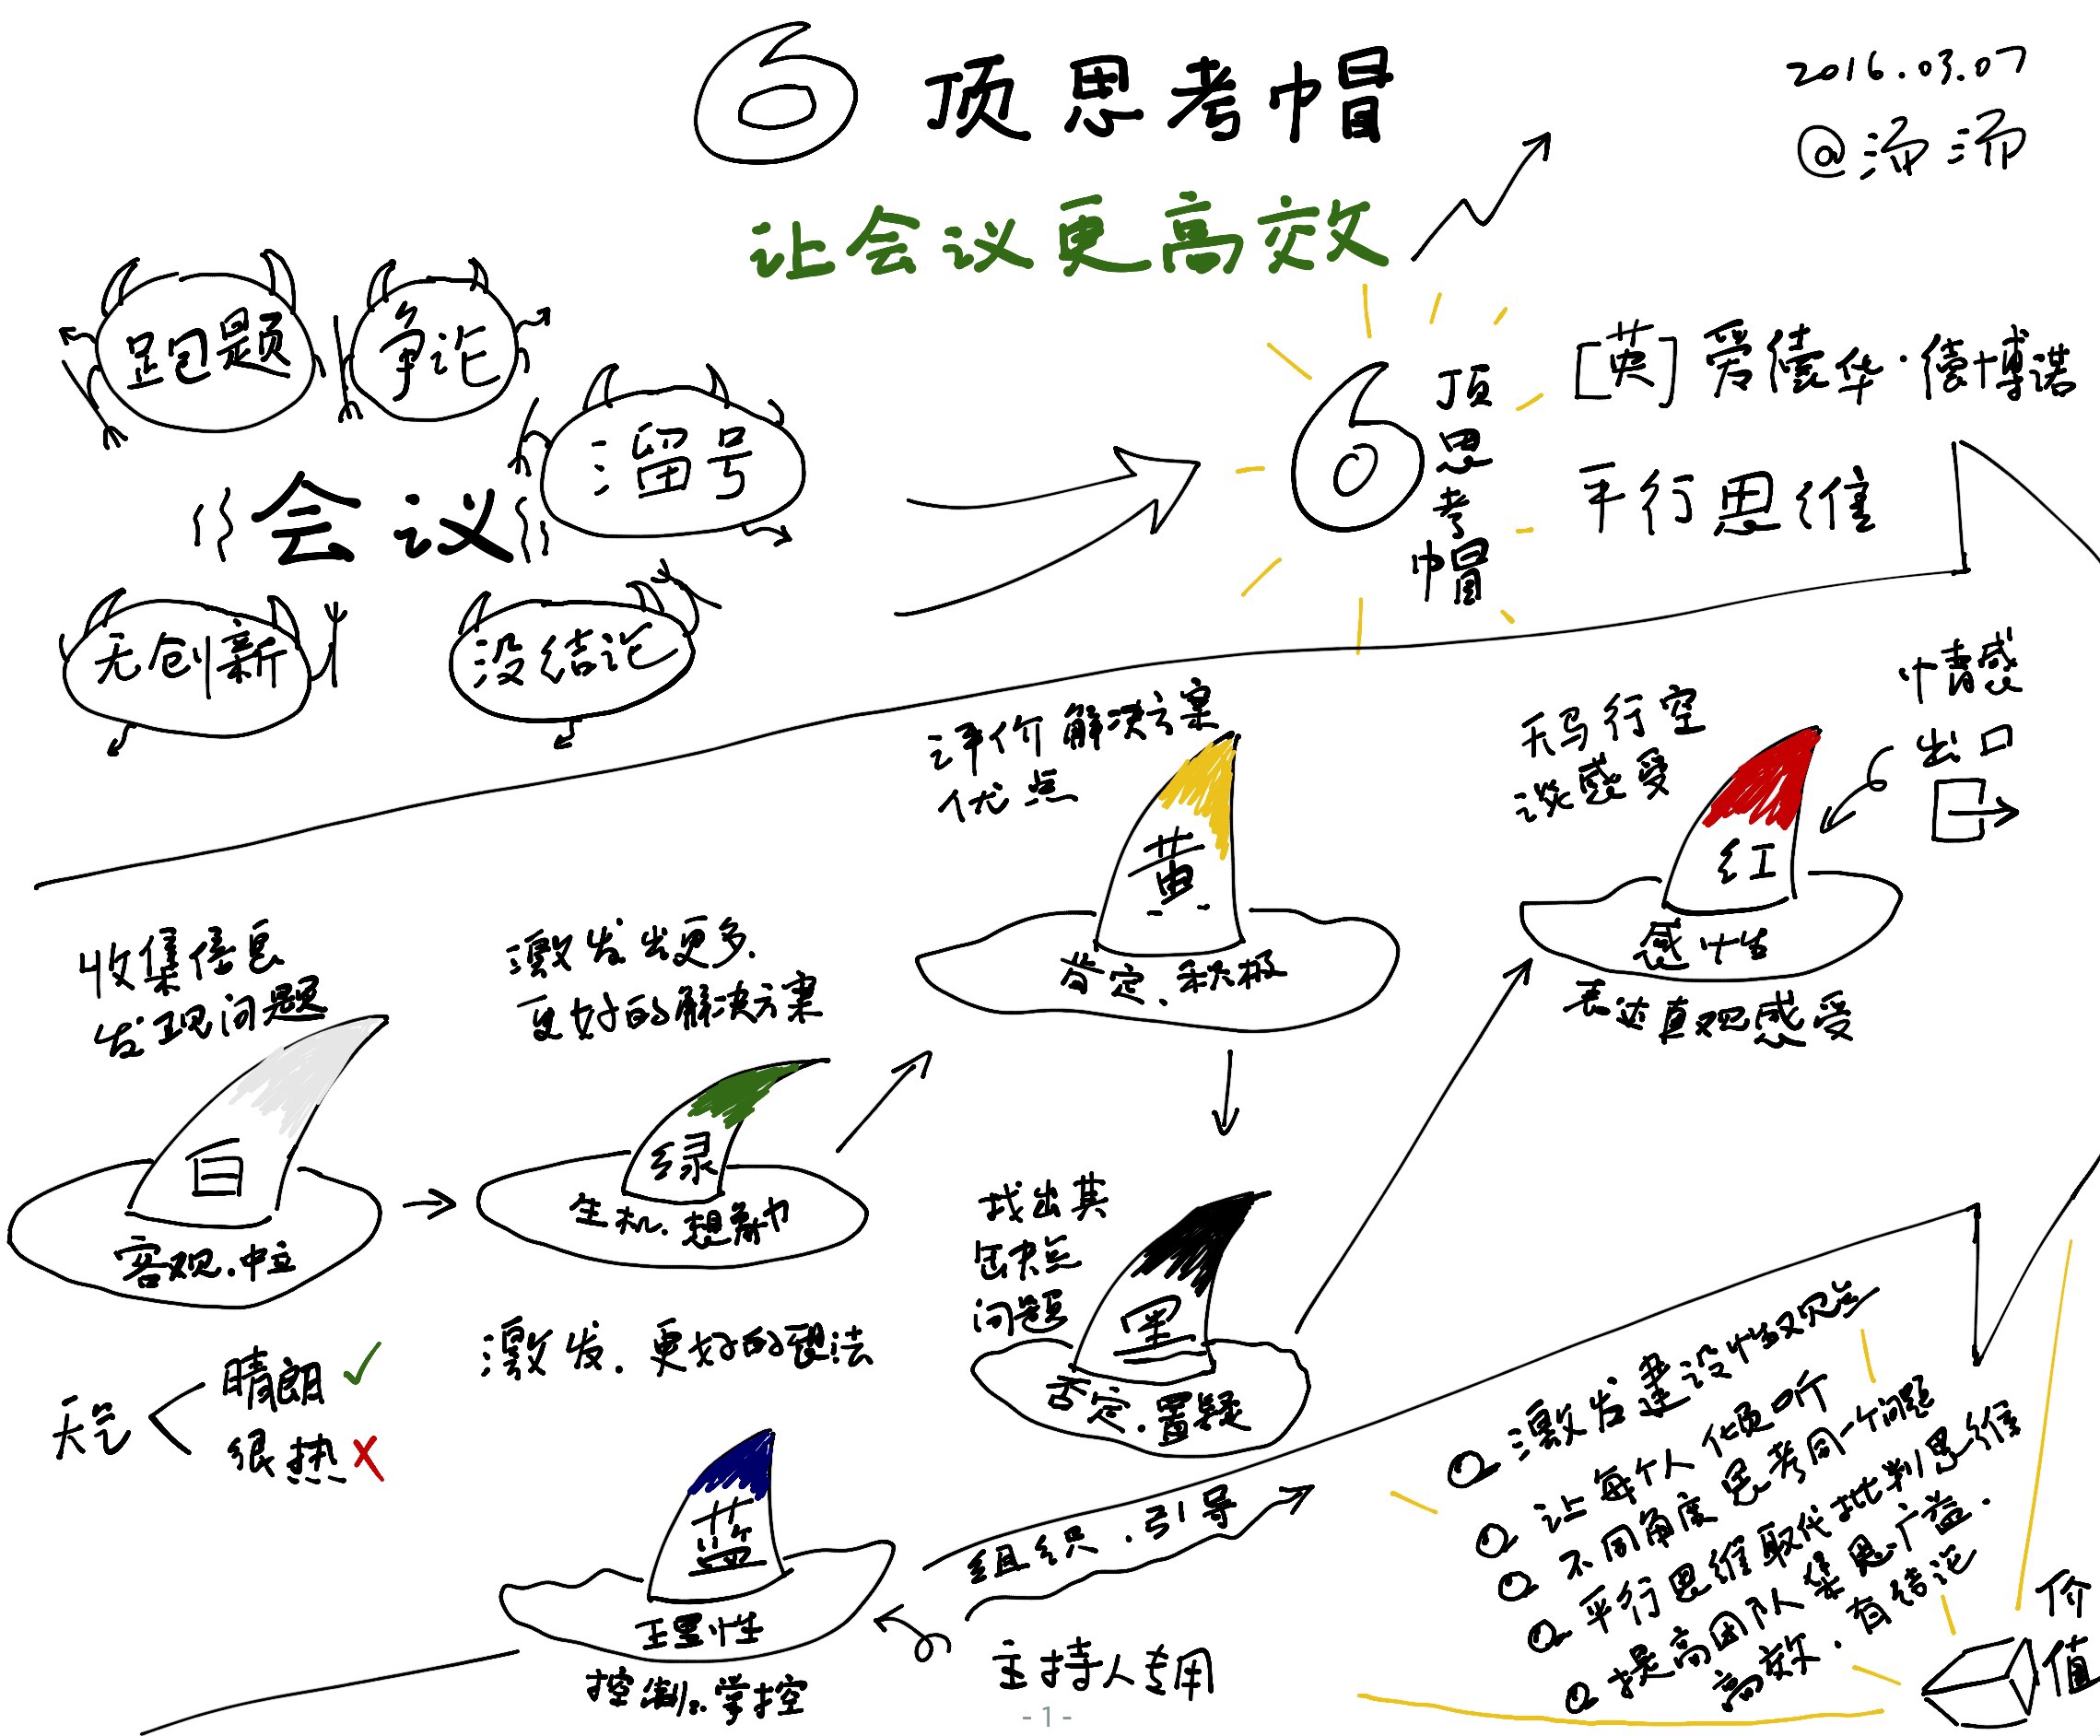 6顶思考帽
2016.03.07
@汤汤
让会议更高效
跑题
争论
溜号
会议
无创新
没结论
6顶思考帽
[英]爱德华·德博诺
平行思维
收集信息
发现问题
白
客观.中立
天气
晴朗
很热
激发出更多.
更好的解决方案
绿
生机.想象力
激发.更好的想法
评价解决方案
优点
黄
肯定.积极
找出其
缺点
问题
黑
否定.置疑
天马行空
谈感受
红
感性
表达直观感受
情感
出口
蓝
理性
控制.掌控
组织.引导
主持人专用
激发建设性观点
让每个人倾听
不同角度思考同一个问题
平行思维取代批判思维
提高团队集思广益.
高效.有结论
价值
- 1 -